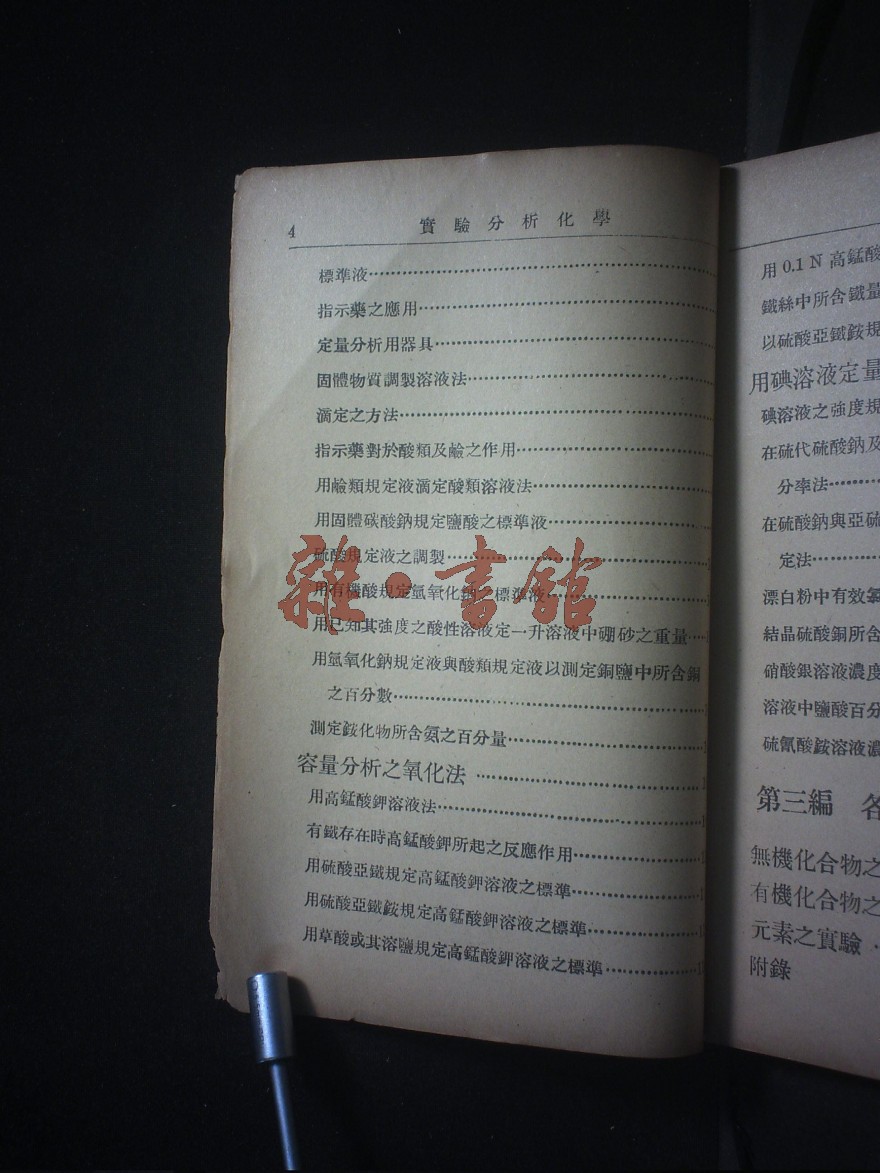 4
實驗分析化學
標準液
指示藥之應用
定量分析用器具
固體物質調製溶液法
滴定之方法
指示藥對於酸類及鹼之作用
用鹼類規定液滴定酸類溶液法
用固體碳酸鈉規定鹽酸之標準液
硫酸規定液之調製
用有機酸規定氫氧化鈉之標準液
用已知其強度之酸性溶液定一升溶液中硼砂之重量
用氫氧化鈉規定液與酸類規定液以測定銅鹽中所含銅
之百分數
測定銨化物所含氨之百分量
容量分析之氧化法
用高錳酸鉀溶液法
有鐵存在時高錳酸鉀所起之反應作用
用硫酸亞鐵規定高錳酸鉀溶液之標準
用硫酸亞鐵銨規定高錳酸鉀溶液之標準
用草酸或其溶鹽規定高錳酸鉀溶液之標準
雜·書館
用 0.1 N 高錳酸
鐵絲中所含鐵量
以硫酸亞鐵銨規
用碘溶液定量
碘溶液之強度規
在硫代硫酸鈉及
分率法
在硫酸鈉與亞硫
定法
漂白粉中有效氯
結晶硫酸銅所含
硝酸銀溶液濃度
溶液中鹽酸百分
硫氰酸銨溶液濃
第三編 各
無機化合物之
有機化合物之
元素之實驗
附錄